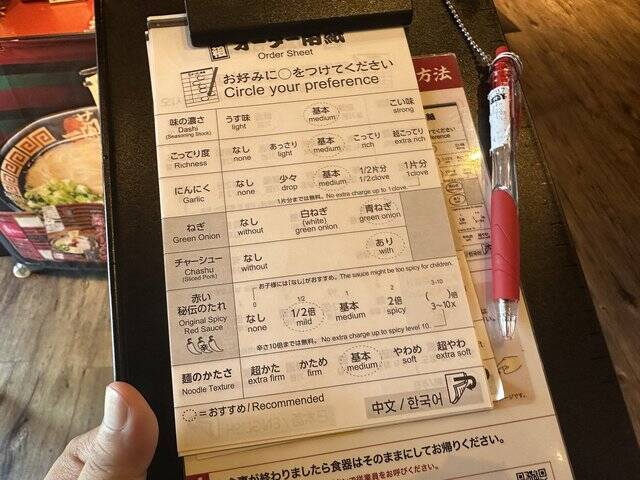 オーダー用紙
Order Sheet
お好みに○をつけてください
Circle your preference
味の濃さ
Dashi
(Seasoning Stock)
うす味 基本 こい味
light medium strong
こってり度
Richness
なし あっさり 基本 こってり 超こってり
none light medium rich extra rich
にんにく
Garlic
なし 少々 基本 1/2片分 1片分
none drop medium 1/2clove 1clove
1片分までは無料。No extra charge up to 1 clove.
ねぎ
Green Onion
なし 白ねぎ 青ねぎ
without (white) green onion green onion
チャーシュー
Chashu
(Sliced Pork)
なし あり
without with
赤い
秘伝のたれ
Original Spicy
Red Sauce
お子様には「なし」がおすすめ。The sauce might be too spicy for children.
0 1/2 1 2 3-10
なし 1/2倍 基本 2倍 ( )倍
none mild medium spicy 3~10x
辛さ10倍までは無料。No extra charge up to spicy level 10.
麺のかたさ
Noodle Texture
超かた かため 基本 やわめ 超やわ
extra firm firm medium soft extra soft
=おすすめ/Recommended
中文 / 한국어
方法
食事が終わりましたら食器はそのままにしてお帰りください。